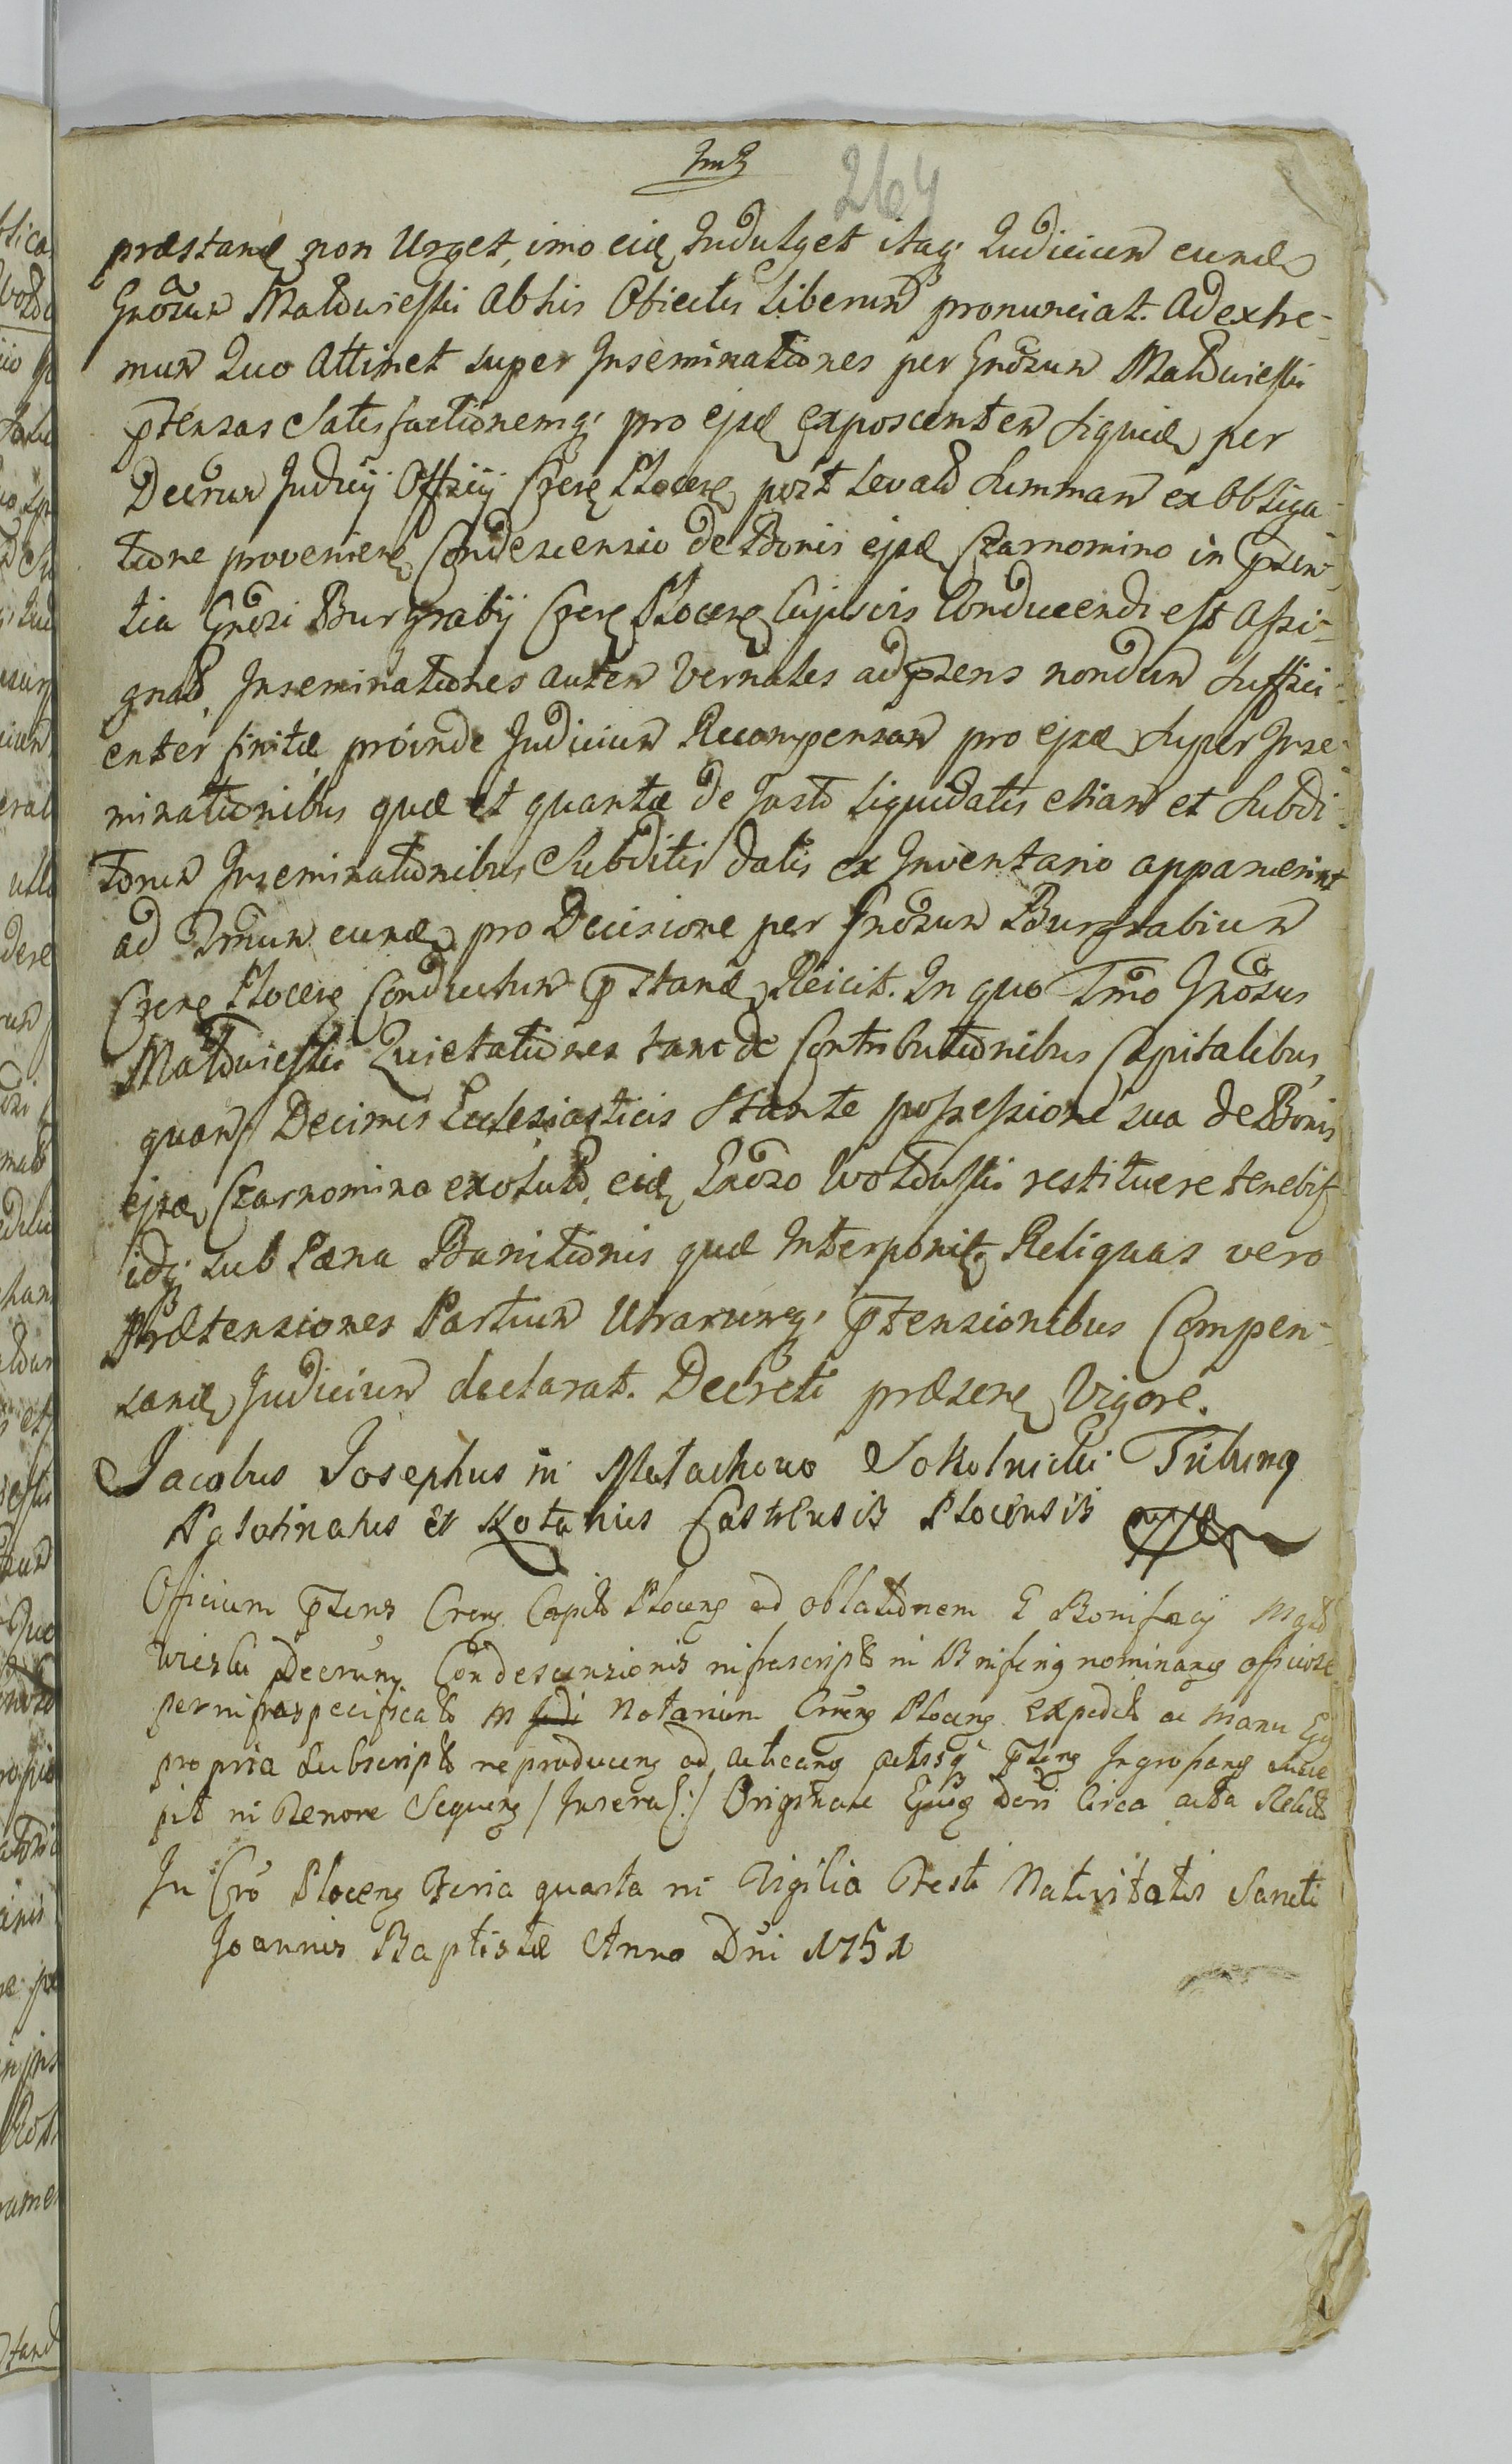 264
præstand non Urget, imo eid Indulget itaq; Judicium eund
Gnosum Małdwieski ab his Obiectis Liberum pronunciat. Ad extre-
mum Quo Attinet super Inseminationes per Gnosum Małdwieski
ptensas Satisfactionemq; pro ejsd exposcentem siquid per
Decrum Judicij Officij Płocen post Levatd Summam ex obliga
tione provenien Condescensio de Bonis ejsd Czarnomino in psen
tia Gnosi Burgrabij Płocen Cujusvis Conducendi est assi-
gnatd, Inseminationes autem Vernales ad psens nondum Suffici-
enter finitæ, proinde Judicium Recompensam pro ejsd Super Inse-
minationibus quæ et quantæ de Justo Liquidatis etiam et Subdi-
torum Inseminationibus Subditis datis ex Inventario apparuerint
ad Tmum eund pro Decisione per Gnosum Burgrabium
Płocen Conductum pstand Reicit. In quo Tmo Gnosus
Małdwieski Quietationes tam de Contributionibus Capitalibus,
quam Decimis Ecclesiasticis Stante possessione sua de Bonis
ejsd Czarnomino exolutd, eid Gnoso Wołduski restituere tenebit
idq; sub Pæna Banitionis quæ Interponit. Reliquas vero
Prætensiones Partium Utrarumq; ptensionibus Compen-
sand Judicium declarat. Decreti præsen Vigore.
Jacobus Josephus in Małachowo Sokolnicki Tribung
Palatinatus et Notarius Castrensis Plocensis
Officium psens Capit Plocens ad oblationem G Bonifacij Małd
wieski Decrum Condescensionis infrascript in nominang officiose
per infraspecificatd M Notarium Plocens expedit ac manu Ejus
propria Subscript reproducens ad acticand actisq psens Ingrossand susce
pit in Tenore Sequens / Insera(:/ Originale Circa acta Relict
In Cro Plocens Feria quarta in Vigilia Festi Nativitatis Sancti
Joannis Baptistæ Anno Dni 1751